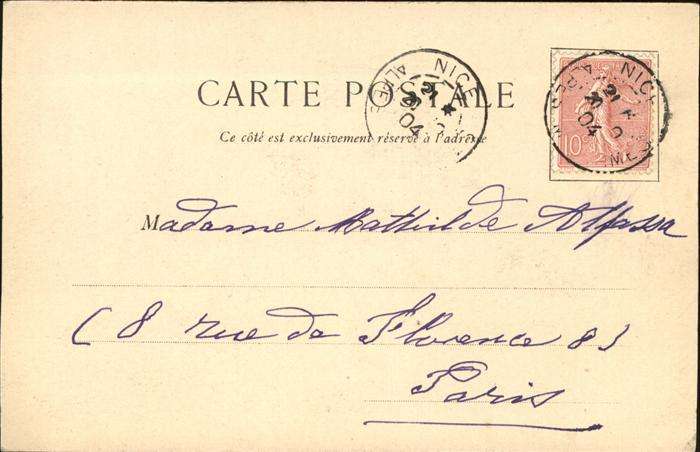 CARTE POSTALE
Ce côté est exclusivement réservé à l'adresse
NICE
ALPES
21
04
NICE
ALPES
21
04
10
Madame Mathilde Alfassa
(8 rue de Florence 8)
Paris